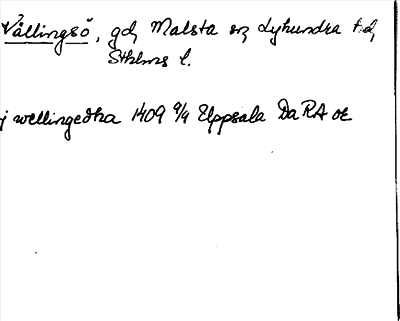 Vällingsö, gd, Malsta sn, Lyhundra hd,
Sthlms l.
j wællingedha 1409 9/9 Uppsala Da RA or